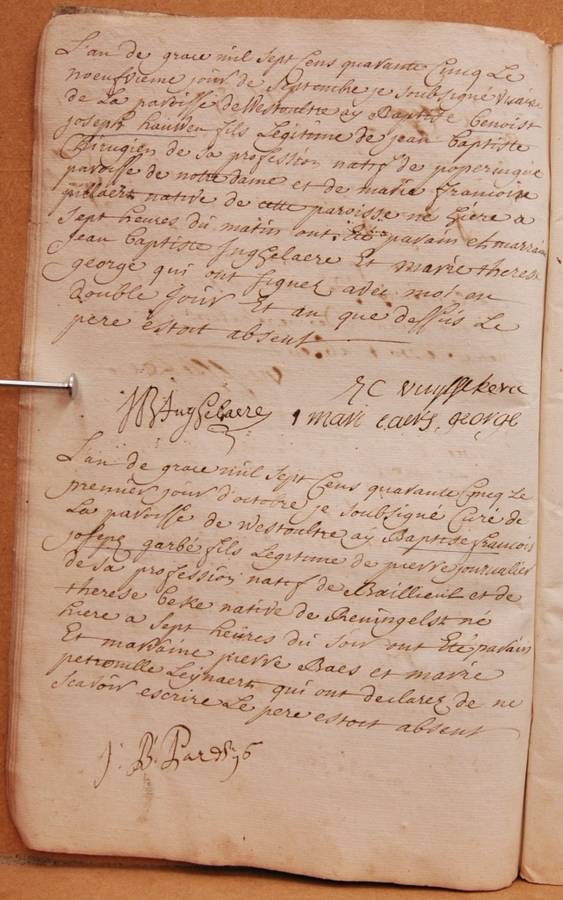 L'an de grace mil sept cens quarante cincq Le
noeufvieme jour de Septembre je soubsigné vicaire
de La paroisse de Westoultre ay Baptisé benoist
joseph hauwen fils Legitime de jean baptiste
Chirugien de sa profession natif de poperingue
paroisse de notre dame et de marie francoise
pillaert native de cette paroisse né hiere a
sept heures du matin ont été parain et marraine
jean baptiste Inghelaere Et marie therese
george qui ont signez avec moi en
double jour Et an que dessus Le
pere estoit absent
JB Inghelaere
marie george
L'an de grace mil sept Cens quarante Cincq Le
premier jour d'octobre je soubsigné Curé de
La paroisse de Westoultre ay Baptisé francois
joseph garbé fils Legitime de pierre journalier
de sa profession natif de Baillieul et de
therese beke native de Reningelst né
hiere a sept heures du soir ont Eté parain
Et marraine pierre Baes et marie
petronille Leynaert qui ont declarez de ne
scavoir escrire Le pere estoit absent